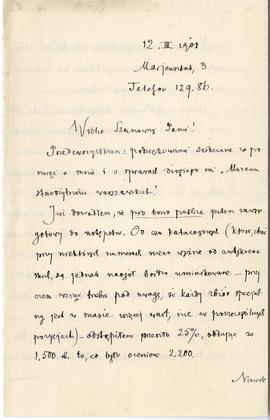 12. III. 1901
Marjensztat, 3
Telefon 129.86.
Wielce Szanowny Panie!
Przedewszystkiem: podziękowanie serdeczne za pa
mięć o mnie i o sprawach drogiego mi „Muzeum
starożytności warszawskich".
Już dowodem, że pro bono publico jestem zawsze
gotowy do ustępstw. Od cen katalogowych (które, choć
przy niektórych numerach nieco wyższe od antykwar
skich, są jednak naogół bardzo umiarkowane – przy
czem wziąć trzeba pod uwagę, że każdy zbiór specjal
ny jest w masie więcej wart, niż w poszczególnych
pozycjach) – odstąpiłem przeszło 25%, oddając za
1,500 rb. to, co było ocenione 2,200.